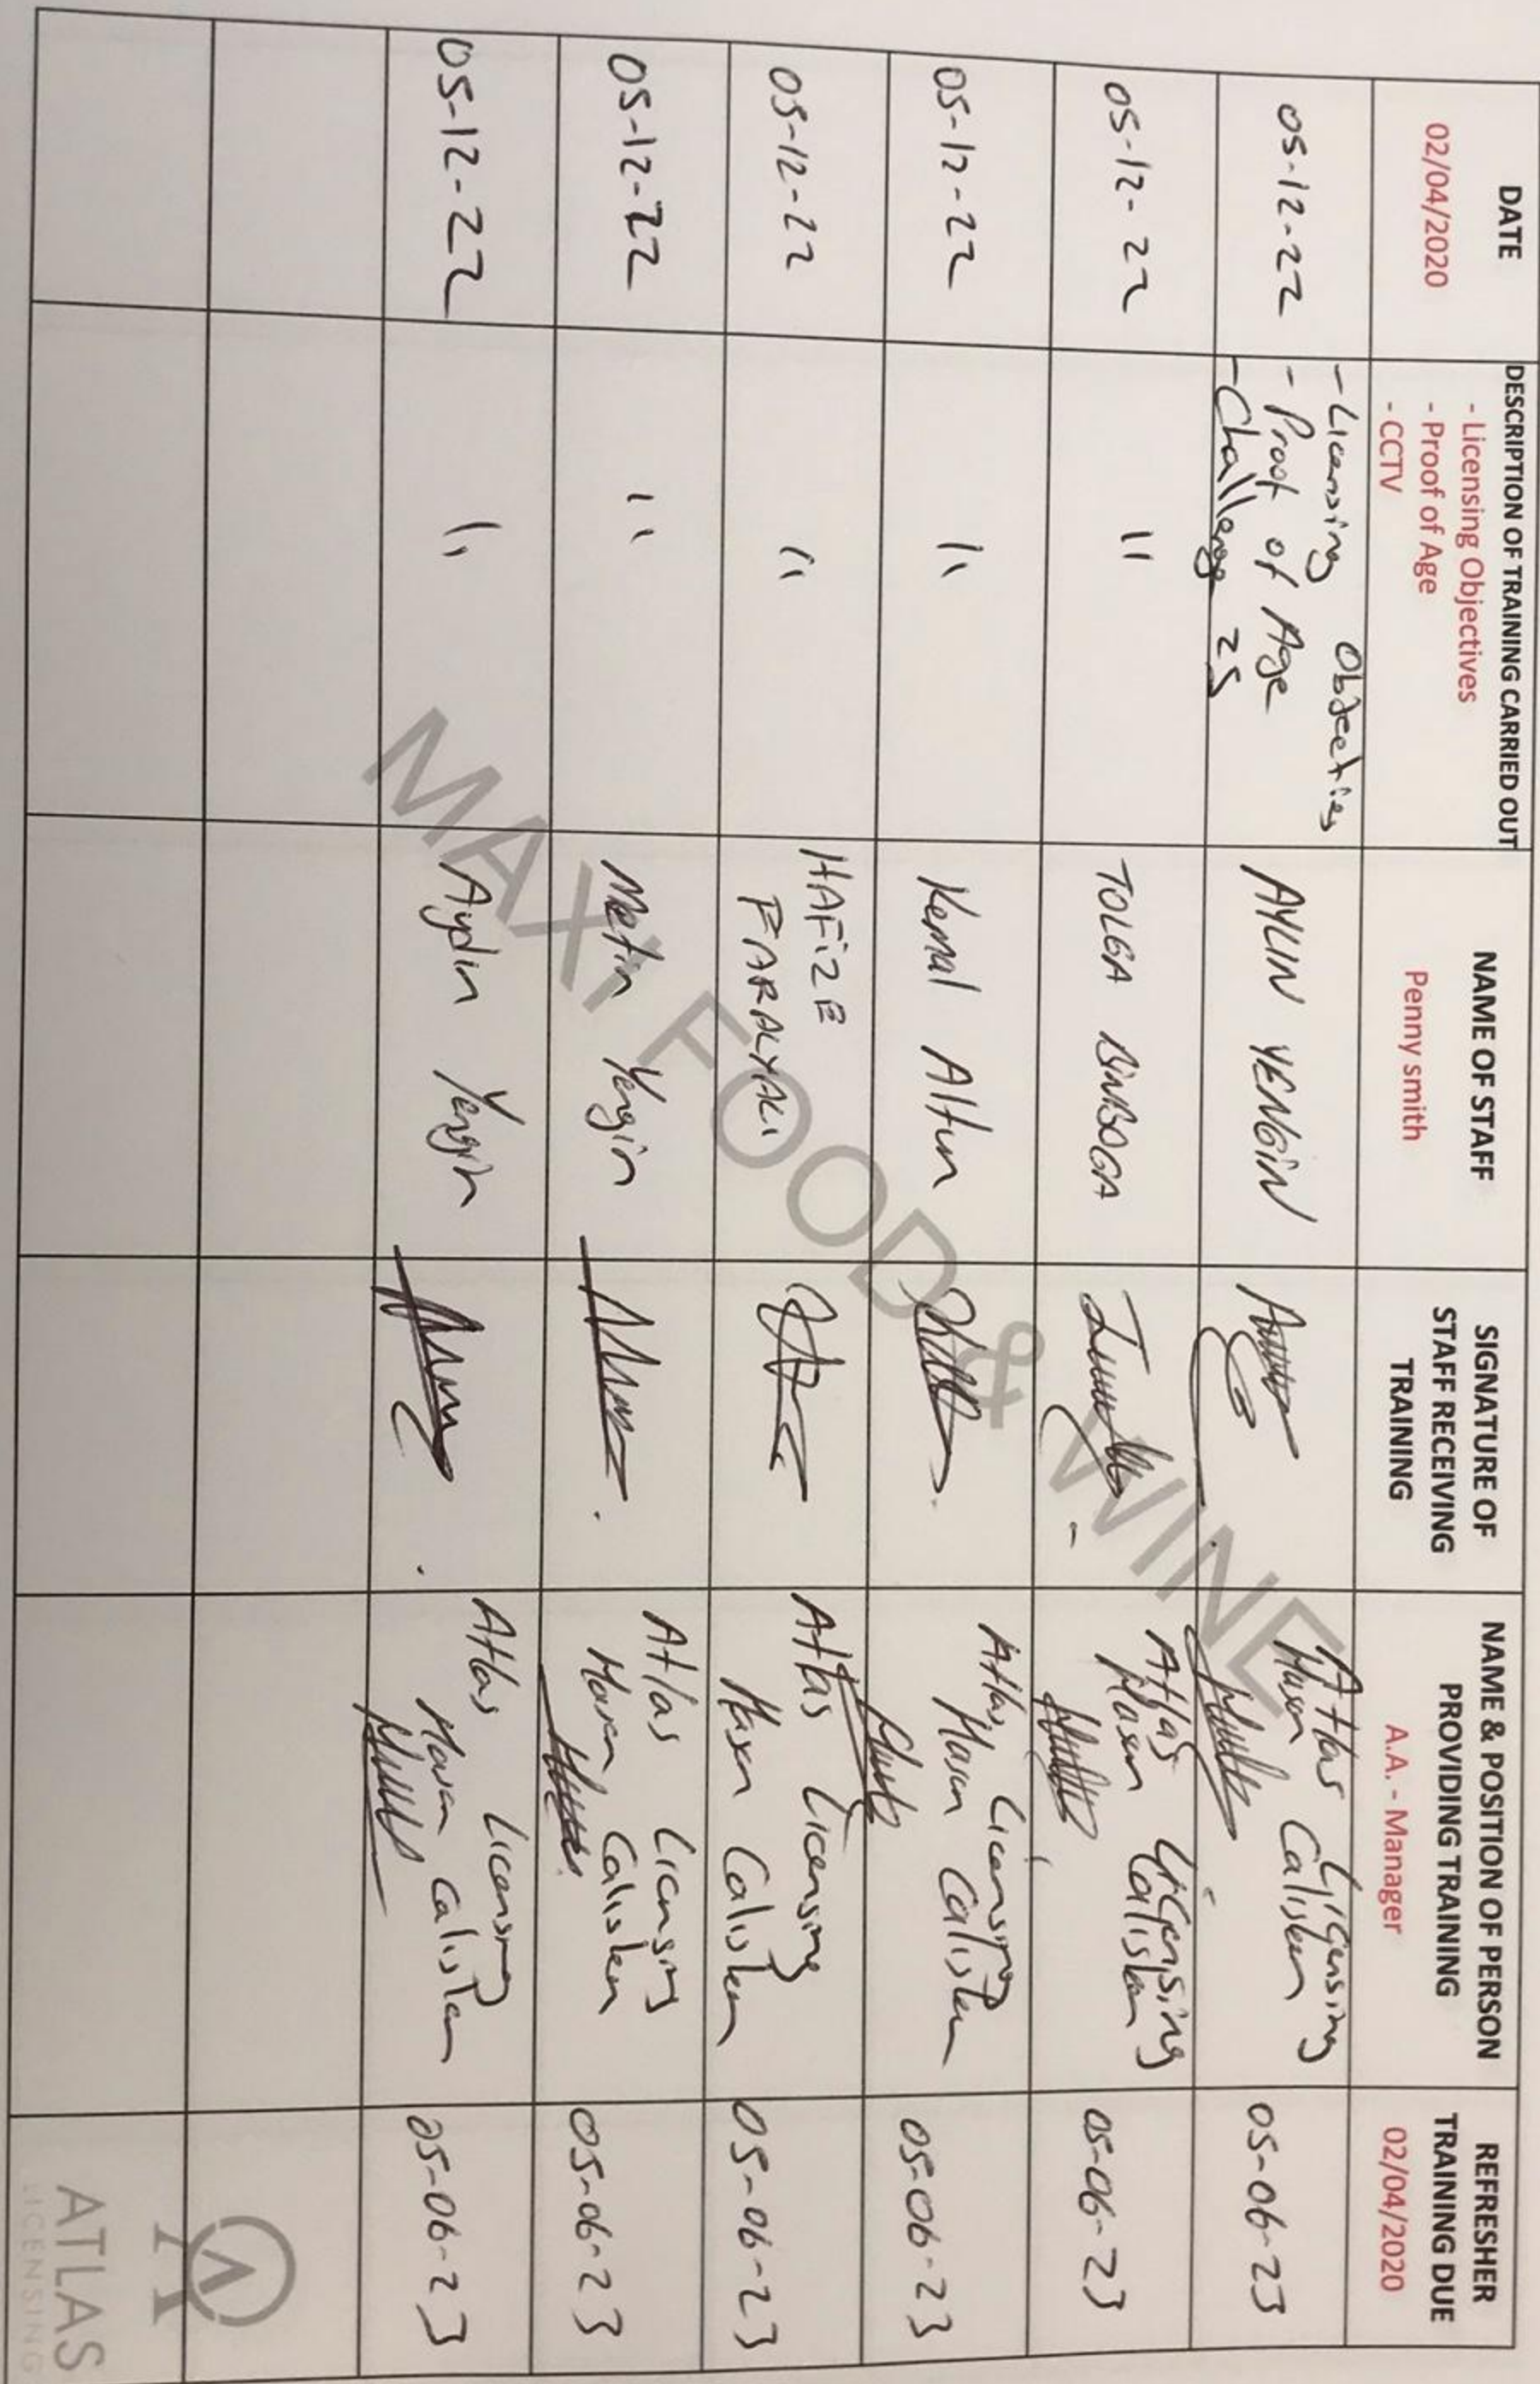 DATE
DESCRIPTION OF TRAINING CARRIED OUT
NAME OF STAFF
SIGNATURE OF
STAFF RECEIVING
TRAINING
NAME & POSITION OF PERSON
PROVIDING TRAINING
REFRESHER
TRAINING DUE
02/04/2020
- Licensing Objectives
- Proof of Age
- CCTV
Penny smith
A.A. - Manager
02/04/2020
05-12-22
- Licensing Objectives
- Proof of Age
- Challenge 25
AYLIN YENGiN
Atlas Licensing
Hasan Calisken
05-06-23
05-12-22
"
TOLGA BINBOGA
Atlas Licensing
Hasan Calisken
05-06-23
05-12-22
"
Kemal Altun
Atlas Licensing
Hasan Calisken
05-06-23
05-12-22
"
HAFiZE
Atlas Licensing
Hasan Calisken
05-06-23
05-12-22
"
Metin Yengin
Atlas Licensing
Hasan Calisken
05-06-23
05-12-22
"
Aydin Yengin
Atlas Licensing
Hasan Calisken
05-06-23
MAXI FOOD & WINE
ATLAS
LICENSING